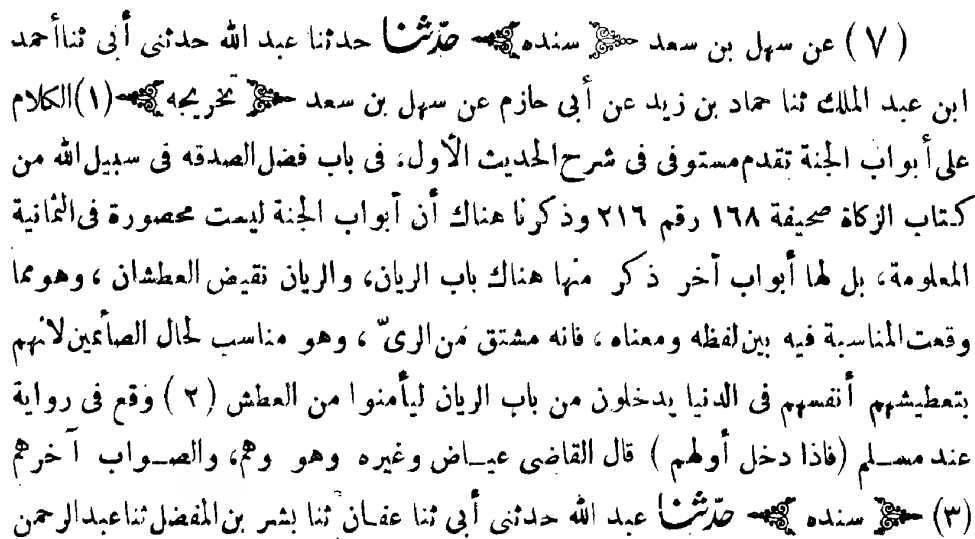 (٧) عن سهل بن سعد ﴿ سنده ﴾ حدّثنا حدثنا عبد الله حدثنى أبى ثنا أحمد
ابن عبد الملك ثنا حماد بن زيد عن أبى حازم عن سهل بن سعد ﴿ تخريجه ﴾ (١) الكلام
على أبواب الجنة تقدم مستوفى فى شرح الحديث الأول، فى باب فضل الصدقه فى سبيل الله من
كتاب الزكاة صحيفة ١٦٨ رقم ٢١٦ وذكرنا هناك أن أبواب الجنة ليست محصورة فى الثمانية
المعلومة، بل لها أبواب آخر ذكر منها هناك باب الريان، والريان نقيض العطشان، وهو مما
وقعت المناسبة فيه بين لفظه ومعناه، فانه مشتق من الرىّ، وهو مناسب لحال الصائمين لانهم
بتعطيشهم أنفسهم فى الدنيا يدخلون من باب الريان ليأمنوا من العطش (٢) وقع فى رواية
عند مسلم (فاذا دخل أولهم) قال القاضى عياض وغيره وهو وهم، والصواب آخرهم
(٣) ﴿ سنده ﴾ حدّثنا عبد الله حدثنى أبى ثنا عفان ثنا بشر بن المفضل ثنا عبد الرحمن